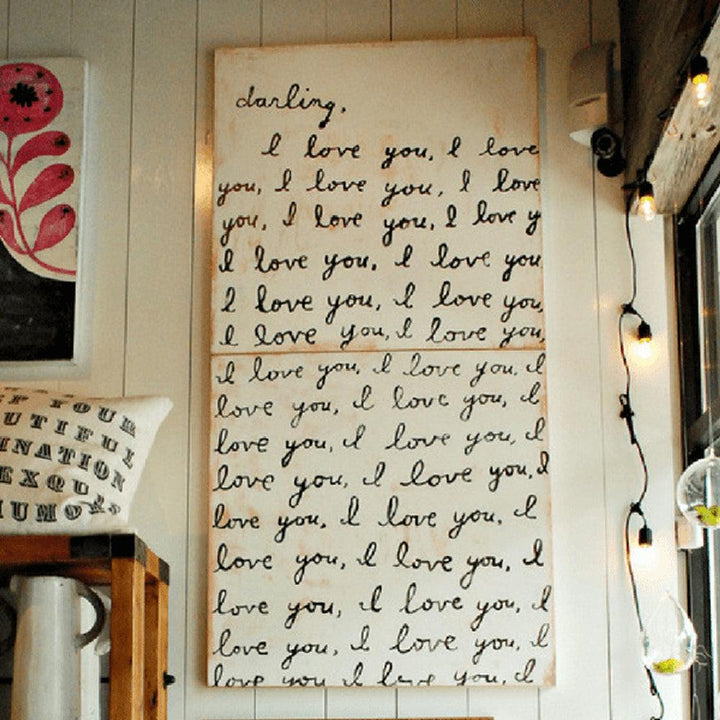 darling,
I love you, I love
you, I love you, I love
you, I love you, I love y
I love you, I love you
I love you, I love you,
I love you, I love you,
I love you, I love you, I
love you, I love you, I
love you, I love you, I
love you, I love you, I
love you, I love you, I
love you, I love you, I
love you, I love you, I
love you, I love you, I
love you I love you, I
YOUR
UTIFUL
INATION
EXQUIS
UMOR